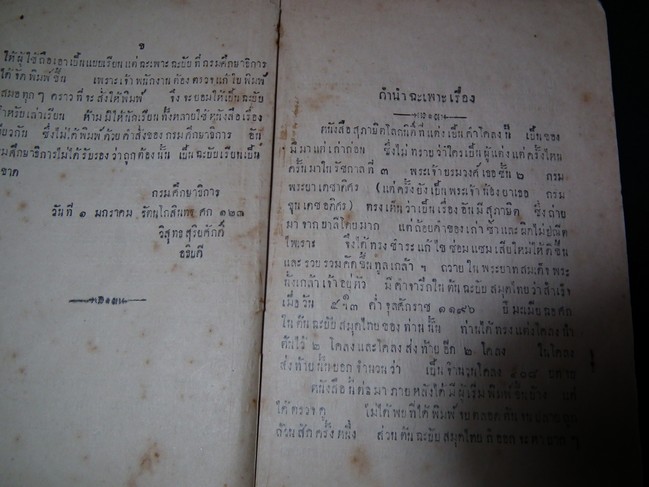 ๖
ให้ผู้ใช้ถือเอาเปนแบบเรียน แต่ฉะเพาะฉบับที่กรมศึกษาธิการ
ได้จัดพิมพ์ขึ้น เพราะเจ้าพนักงานต้องตรวจแก้ใบพิมพ์
เสมอทุก ๆ คราวที่จะสั่งให้พิมพ์ จึงจะยอมให้เปนฉบับ
สำหรับเล่าเรียน ห้ามมิให้นักเรียนทั้งหลายใช้หนังสือเรื่อง
เดียวกัน ซึ่งไม่ได้พิมพ์ด้วยคำสั่งของกรมศึกษาธิการ อัน
กรมศึกษาธิการไม่ได้รับรองว่าถูกต้องนั้น เปนฉบับเรียนเปนอัน
ขาด
กรมศึกษาธิการ
วันที่ ๑ มกราคม รัตนโกสินทร ศก ๑๒๓
วิสุทธสุริยศักดิ์
อธิบดี
คำนำฉะเพาะเรื่อง
หนังสือสุภาสิตโลกนิติที่แต่งเปนคำโคลงนี้ เปนของ
มีมาแต่เก่าก่อน ซึ่งไม่ทราบว่าใครเปนผู้แต่งแต่ครั้งไหน
ครั้นมาในรัชกาลที่ ๓ พระเจ้าบรมวงศ์เธอชั้น ๒ กรม
พระยาเดชาดิศร (แต่ครั้งยังเปนพระเจ้าน้องยาเธอ กรม
ขุนเดชอดิศร) ทรงเห็นว่าเปนเรื่องอันมีสุภาสิต ซึ่งถ่าย
มาจากบาลีโดยมาก แต่ถ้อยคำของเก่าช้ำแลผิดไม่ปณีต
ไพเราะ จึงได้ทรงชำระแก้ไขซ่อมแซมเสียใหม่ให้ดีขึ้น
และรวบรวมคัดขึ้นทูลเกล้า ฯ ถวายในพระบาทสมเด็จพระ
นั่งเกล้าเจ้าอยู่หัว มีคำจาฤกในต้นฉบับสมุดไทยว่าสำเร็จ
เมื่อวัน ค่ำ จุลศักราช ๑๑๙๖ ปีมะเมียฉอศก
ในต้นฉบับสมุดไทยของท่านนั้น ท่านได้ทรงแต่งโคลงนำ
ต้นไว้ ๒ โคลงและโคลงส่งท้ายอีก ๒ โคลง ในโคลง
ส่งท้ายนั้นบอกจำนวนว่า เปนจำนวนโคลง
หนังสือนี้ต่อมาภายหลังได้มีผู้เริ่มพิมพ์ขึ้นบ้าง แต่
ได้ตรวจดู ไม่ได้พบที่ได้พิมพ์จบตลอดต้นจน
ถ้วนสักครั้งหนึ่ง ส่วนต้นฉบับสมุดไทยก็ออกจะหายาก ๆ